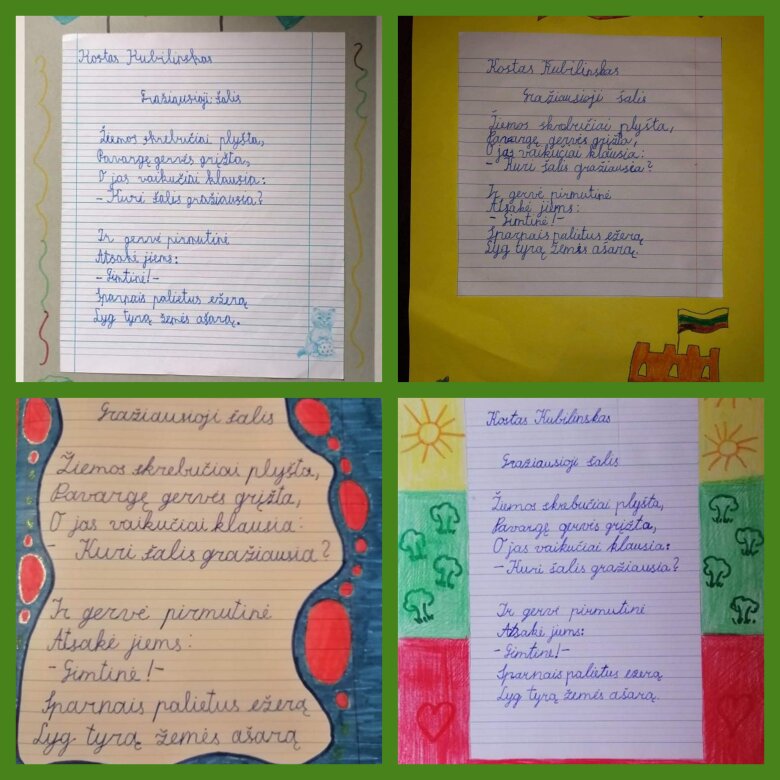 Kostas Kubilinskas
Gražiausioji šalis
Žiemos skrebučiai plyšta,
Pavargę gervės grįšta,
O jas vaikučiai klausia:
- Kuri šalis gražiausia?
Ir gervė pirmutinė
Atsakė jiems:
- Gimtinė! -
Sparnais palietus ežerą
Lyg tyrą žemės ašarą.
Kostas Kubilinskas
Gražiausioji šalis
Žiemos skrebučiai plyšta,
Pavargę gervės grįžta,
O jas vaikučiai klausia:
- Kuri šalis gražiausia?
Ir gervė pirmutinė
Atsakė jiems:
- Gimtinė! -
Sparnais palietus ežerą
Lyg tyrą žemės ašarą.
Gražiausioji šalis
Žiemos skrebučiai plyšta,
Pavargę gervės grįžta,
O jas vaikučiai klausia:
- Kuri šalis gražiausia?
Ir gervė pirmutinė
Atsakė jiems:
- Gimtinė! -
Sparnais palietus ežerą
Lyg tyrą žemės ašarą
Kostas Kubilinskas
Gražiausioji šalis
Žiemos skrebučiai plyšta,
Pavargę gervės grįžta,
O jas vaikučiai klausia:
- Kuri šalis gražiausia?
Ir gervė pirmutinė
Atsakė jiems:
- Gimtinė! -
Sparnais palietus ežerą
Lyg tyrą žemės ašarą.